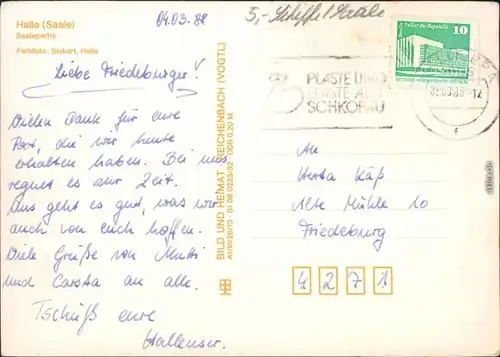 Halle (Saale)
Saalepartie
Farbfoto: Siekert, Halle
04.03.88
5,- Schiffel Saale
Liebe Friedeburger!
Vielen Dank für eure
Post, die wir heute
erhalten haben. Bei uns
regnet es zur Zeit.
Uns geht es gut, was wir
auch von euch hoffen.
Viele Grüße von Mutti
und Carsta an alle.
Tschüß eure
Hallenser.
BILD UND HEIMAT REICHENBACH (VOGTL)
A1/III/26/13 01 08 0223/32 DDR 0,20 M
PLASTE UND
ELASTE AUS
SCHKOPAU
Palast der Republik
10
An
Herta Käß
Alte Mühle 10
Friedeburg
4 2 7 1